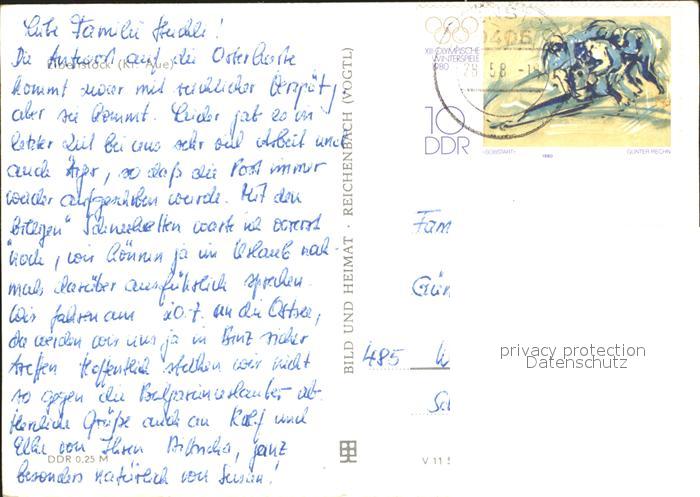 Liebe Familie
Die Antwort auf die Osterkarte
Eibenstock (Kr. Aue)
kommt zwar mit reichlicher Verspätg.
aber sie kommt. Leider gab es in
letzter Zeit bei uns sehr viel Arbeit und
auch Ärger, so daß die Post immer
wieder aufgeschoben wurde. Mit den
warte ich vorerst
noch, wir können ja im Urlaub noch-
mals darüber ausführlich sprechen.
Wir fahren am 20.7. an die Ostsee,
da werden wir uns ja in Binz sicher
treffen. Hoffentlich stechen wir nicht
so gegen die Bulgarienurlauber ab.
Herzliche Grüße auch an Rolf und
Elke von Ihren ganz
besonders natürlich von Susan!
DDR 0,25 M
BILD UND HEIMAT · REICHENBACH (VOGTL)
XIII. OLYMPISCHE
WINTERSPIELE
1980
10
DDR
»BOBSTART«
1980
GÜNTER RECHN
Fam
Gün
485 W
Sc
privacy protection
Datenschutz
V 11